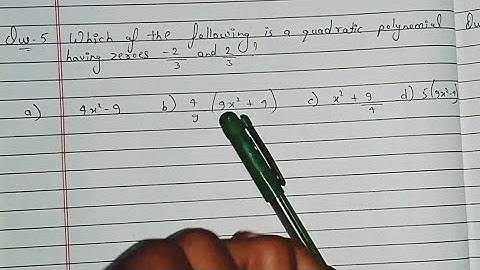 Qu-5 Which of the following is a quadratic polynomial Qu
having zeroes -2/3 and 2/3?
a) 4x² - 9 b) 4/9 (9x² + 4) c) x² + 9/4 d) 5(9x²-4)